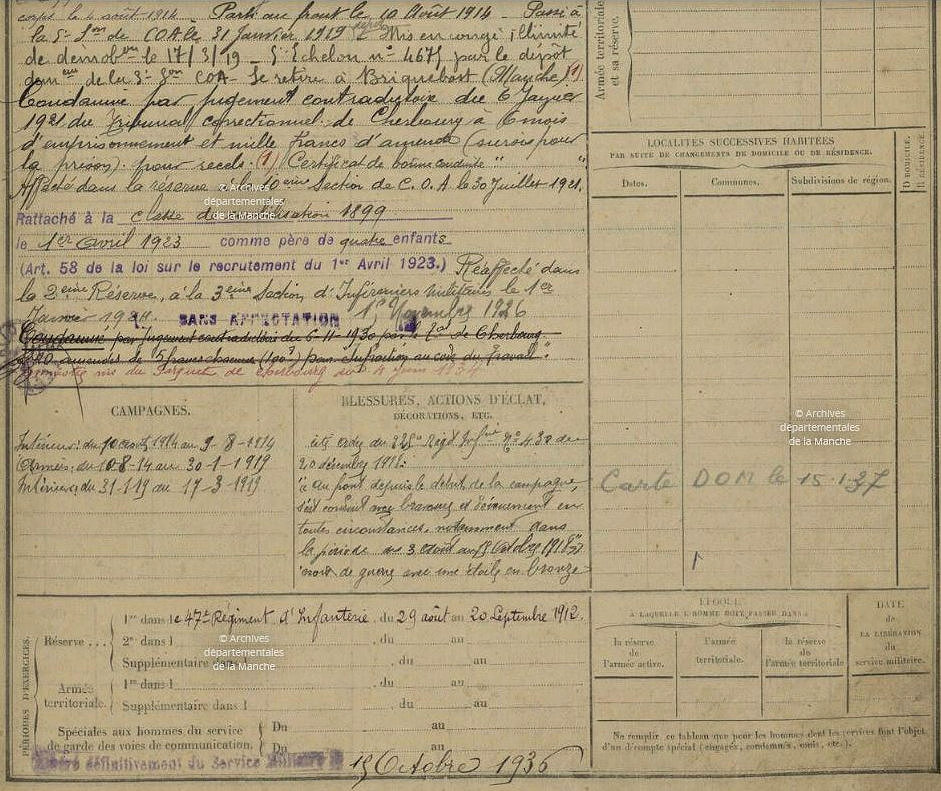 corps le 4 août 1914 Parti au front le 10 Août 1914 - Passé à
la 3e Son de COA le 31 Janvier 1919 Mis en congé illimité
de démobon le 17/3/19 - 5e Echelon n° 4671, par le dépôt
de la 3e Son COA - Se retire à Bricquebost (Manche) (1)
Condamné par jugement contradictoire du 6 Janvier
1921 du Tribunal correctionnel de Cherbourg à 6 mois
d'emprisonnement et mille francs d'amende (sursis pour
la prison) pour recel. (1) Certificat de bonne conduite " "
Affecté dans la réserve à la 10ème Section de C.O.A le 30 Juillet 1921.
Rattaché à la classe de mobilisation 1899
le 1er avril 1923 comme père de quatre enfants
(Art. 58 de la loi sur le recrutement du 1er Avril 1923.) Réaffecté dans
la 2ème Réserve, à la 3ème Section d'Infirmiers militaires le 1er
Janvier 1924. SANS AFFECTATION 1er Novembre 1926
Condamné par jugement contradictoire du 6-11-1930 par le Tal de Cherbourg
à 20 amendes de 5 francs chacune (100f) pour infraction au code du Travail".
du Parquet de Cherbourg du 4 Juin 1934
CAMPAGNES.
Intérieur: du 4 août 1914 au 9-8-1914
Armées: du 10-8-14 au 30-1-1919
Intérieur: du 31-1-19 au 17-3-1919
BLESSURES, ACTIONS D'ÉCLAT,
DÉCORATIONS, ETC.
Cité ordre du Régt Infrie N° 430 du
20 décembre 1918:
"au front depuis le début de la campagne,
s'est conduit avec bravoure et dévouement en
toutes circonstances, notamment dans
la période du 3 août au Octobre 1918"
croix de guerre avec une étoile en bronze
PÉRIODES D'EXERCICES.
Réserve ....
1re dans le 47e Régiment d'Infanterie, du 29 août au 20 Septembre 1912.
2e dans l , du au
Supplémentaire dans l , du au
Armée
territoriale.
1re dans l , du au
Supplémentaire dans l , du au
Spéciales aux hommes du service
de garde des voies de communication.
Du au
Du au
Libéré définitivement du Service Militaire le 15 Octobre 1936
Armée territoriale
et sa réserve.
LOCALITÉS SUCCESSIVES HABITÉES
PAR SUITE DE CHANGEMENTS DE DOMICILE OU DE RÉSIDENCE.
Dates.
Communes.
Subdivisions de région.
D DOMICILE.
R RÉSIDENCE.
Carte DOM le 15.1.37
ÉPOQUE
À LAQUELLE L'HOMME DOIT PASSER DANS :
la réserve
de
l'armée active.
l'armée
territoriale.
la réserve
de
l'armée territoriale
DATE
de
LA LIBÉRATION
du
service militaire.
Ne remplir ce tableau que pour les hommes dont les services font l'objet
d'un décompte spécial (engagés, condamnés, omis, etc.).
© Archives
départementales
de la Manche
© Archives
départementales
de la Manche
© Archives
départementales
de la Manche